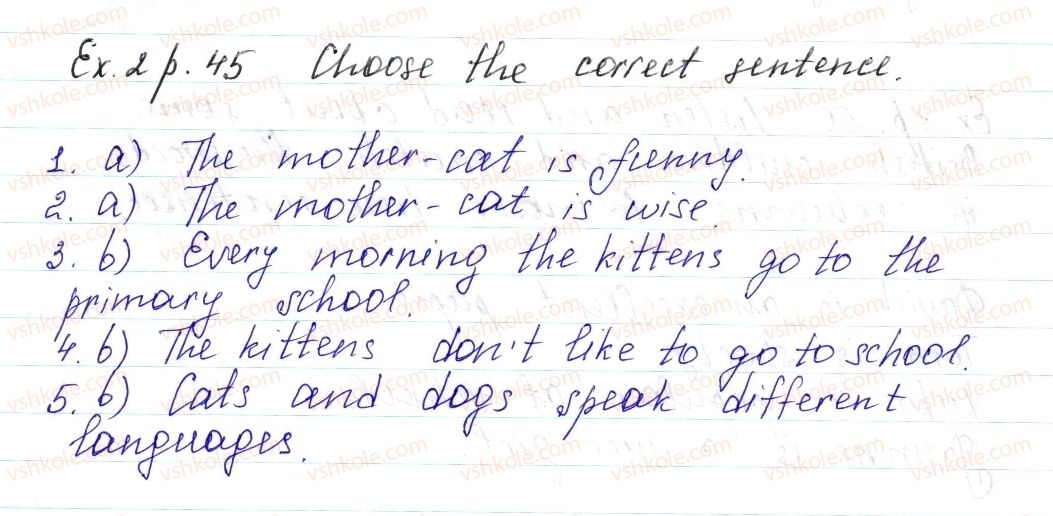 Ex. 2 p. 45 Choose the correct sentence.
1. a) The mother-cat is funny.
2. a) The mother-cat is wise
3. b) Every morning the kittens go to the
primary school.
4. b) The kittens don't like to go to school.
5. b) Cats and dogs speak different
languages.